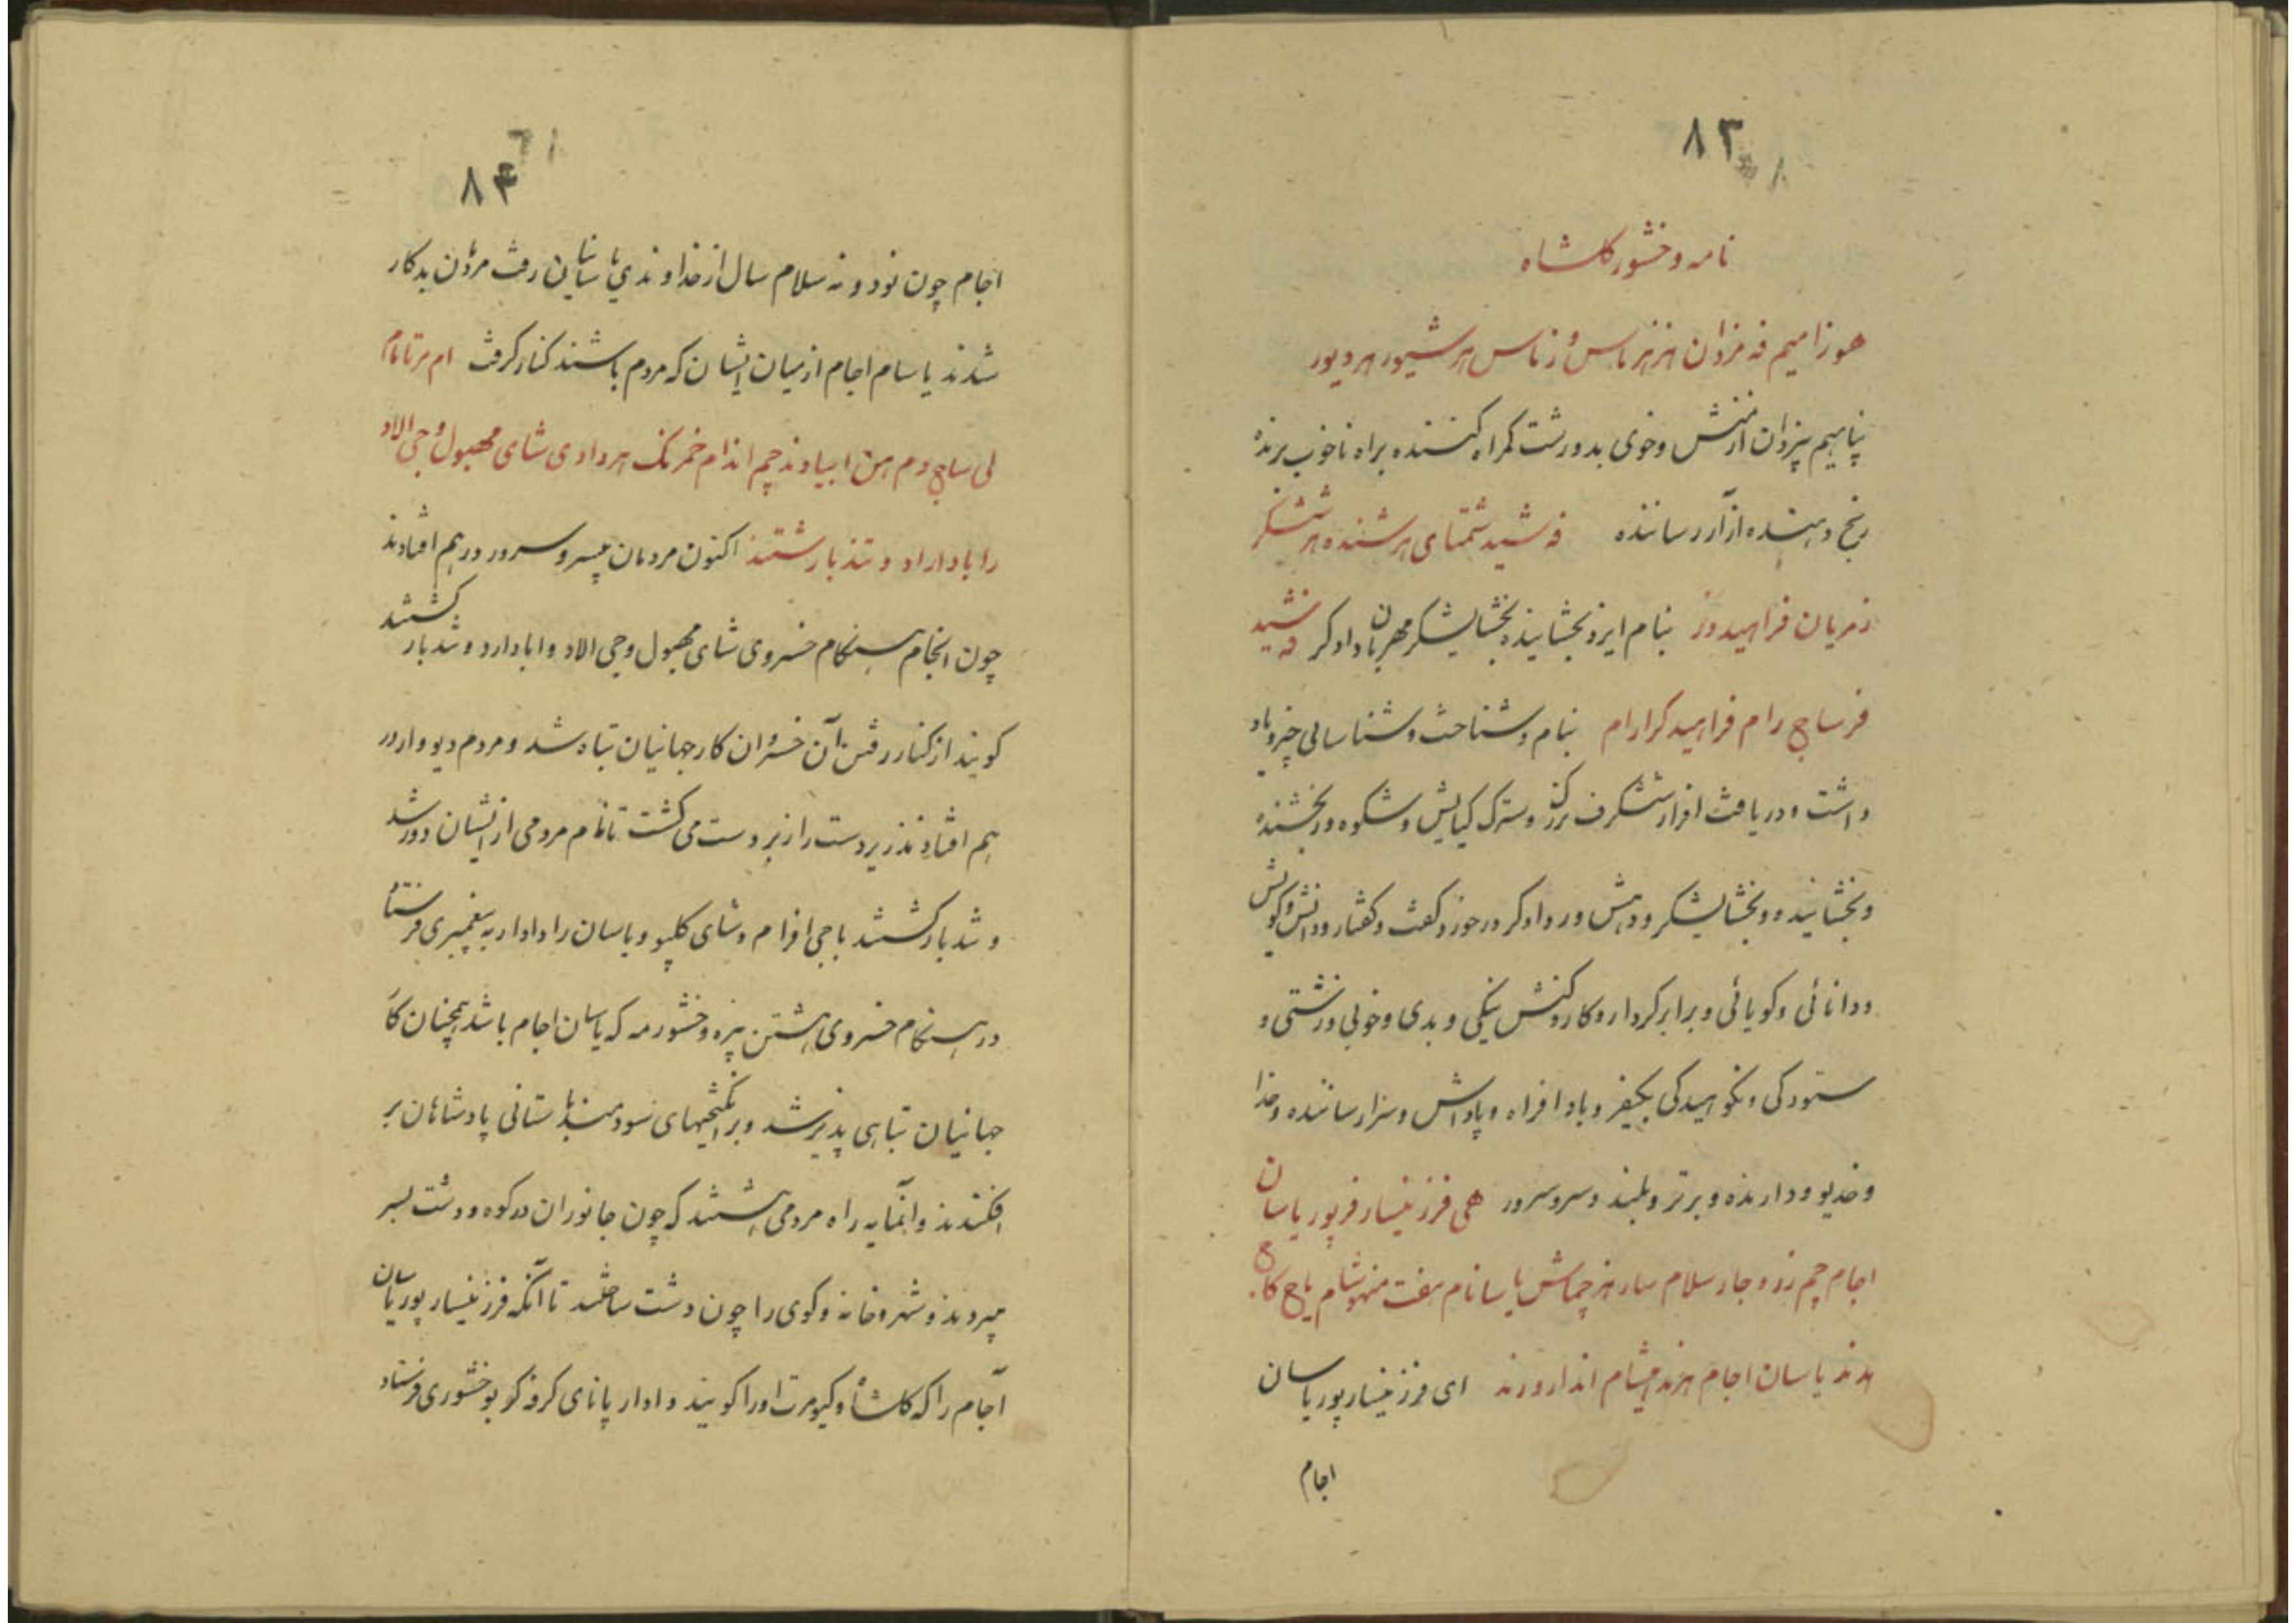 ۸۳
نامه وخشور کلشاه
هوزامیم فه مزدان هز هزماس وزماس هر شیور هر دیور
پناهیم بیزدان از منش وخوی بد وزشت کمراه کننده براه ناخوب برنده
رنج دهنده آزار رساننده فه شید شمتای هر شنده هر ششکر
زمربان فراهیدور بنام ایزد بخشاینده بخشایشکر مهربان دادکر فه شید
فرساج رام فراهید کرارام بنام وشناخت وشناسائی چیز ویاد
داشت ودریافت افراز شکرف بزرک وسترک کیایش وشکوه ور بخشنده
وبخشاینده وبخشایشکر ودهش ور دادکر در خورد کفت وکفتار ودانش وکوش
ودانائی وکویائی وبرابر کردار وکار وکنش نیکی وبدی وخوبی وزشتی و
ستودکی ونکوهیدکی بکیفر وبادافراه وپاداش وسزا رساننده وخدا
وخدیو ودارنده وبرتر وبلند وسر وسرور همی فرزینسار فرپور یاسان
اجام چم رزد وجار سلام سار هز چماش یاسانام هفت منهوشام یاج کاج
هدند یاسان اجام هزند میشام انداروند ای فرزینسار پور یاسان
اجام
۸۴
اجام چون نود ونه سلام سال از خداوندی یاسانیان رفت مردان بدکار
شدند یاسام اجام از میان ایشان که مردم باشند کنار کرفت ام مرتامام
لی ساج وم هن ابیادند چم اندام خمرنک هردادی شای مهبول وجی الاد
را باداراد وتندبار شتند اکنون مردمان بیسر وسرور درهم افتادند
چون انجام هنکام خسروی شای مهبول وجی الاد وابادارد وتندبار کشتند
کویند از کنار رفتن آن خسروان کار جهانیان تباه شد ومردم دیووار در
هم افتادند زبردست را زیردست می کشت تا نام مردمی از ایشان دور شد
وتندبار کشتند با جی افرام وشای کلیو ویاسان را دادار به پیغمبری فرستاد
در هنکام خسروی هشتن ویژه وخشور مه که یاسان اجام باشد همچنان کار
جهانیان تباهی پذیر شد وبرانکیختیهای سودمند باستانی پادشاهان بر
افکندند وانمایه راه مردمی هشتند که چون جانوران در کوه ودشت بسر
میبردند وشهر وخانه وکوی را چون دشت ساختند تا آنکه فرزینسار پور یاسان
آجام را که کلشاه وکیومرت او را کویند دادار پانای کروفکر بوخشوری فرستاد